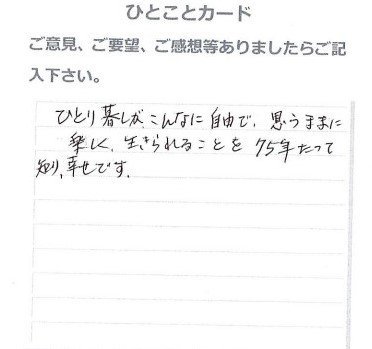 ひとことカード
ご意見、ご要望、ご感想等ありましたらご記
入下さい。
ひとり暮しが、こんなに自由で、思うままに
楽しく、生きられることを75年たって
知り、幸せです。